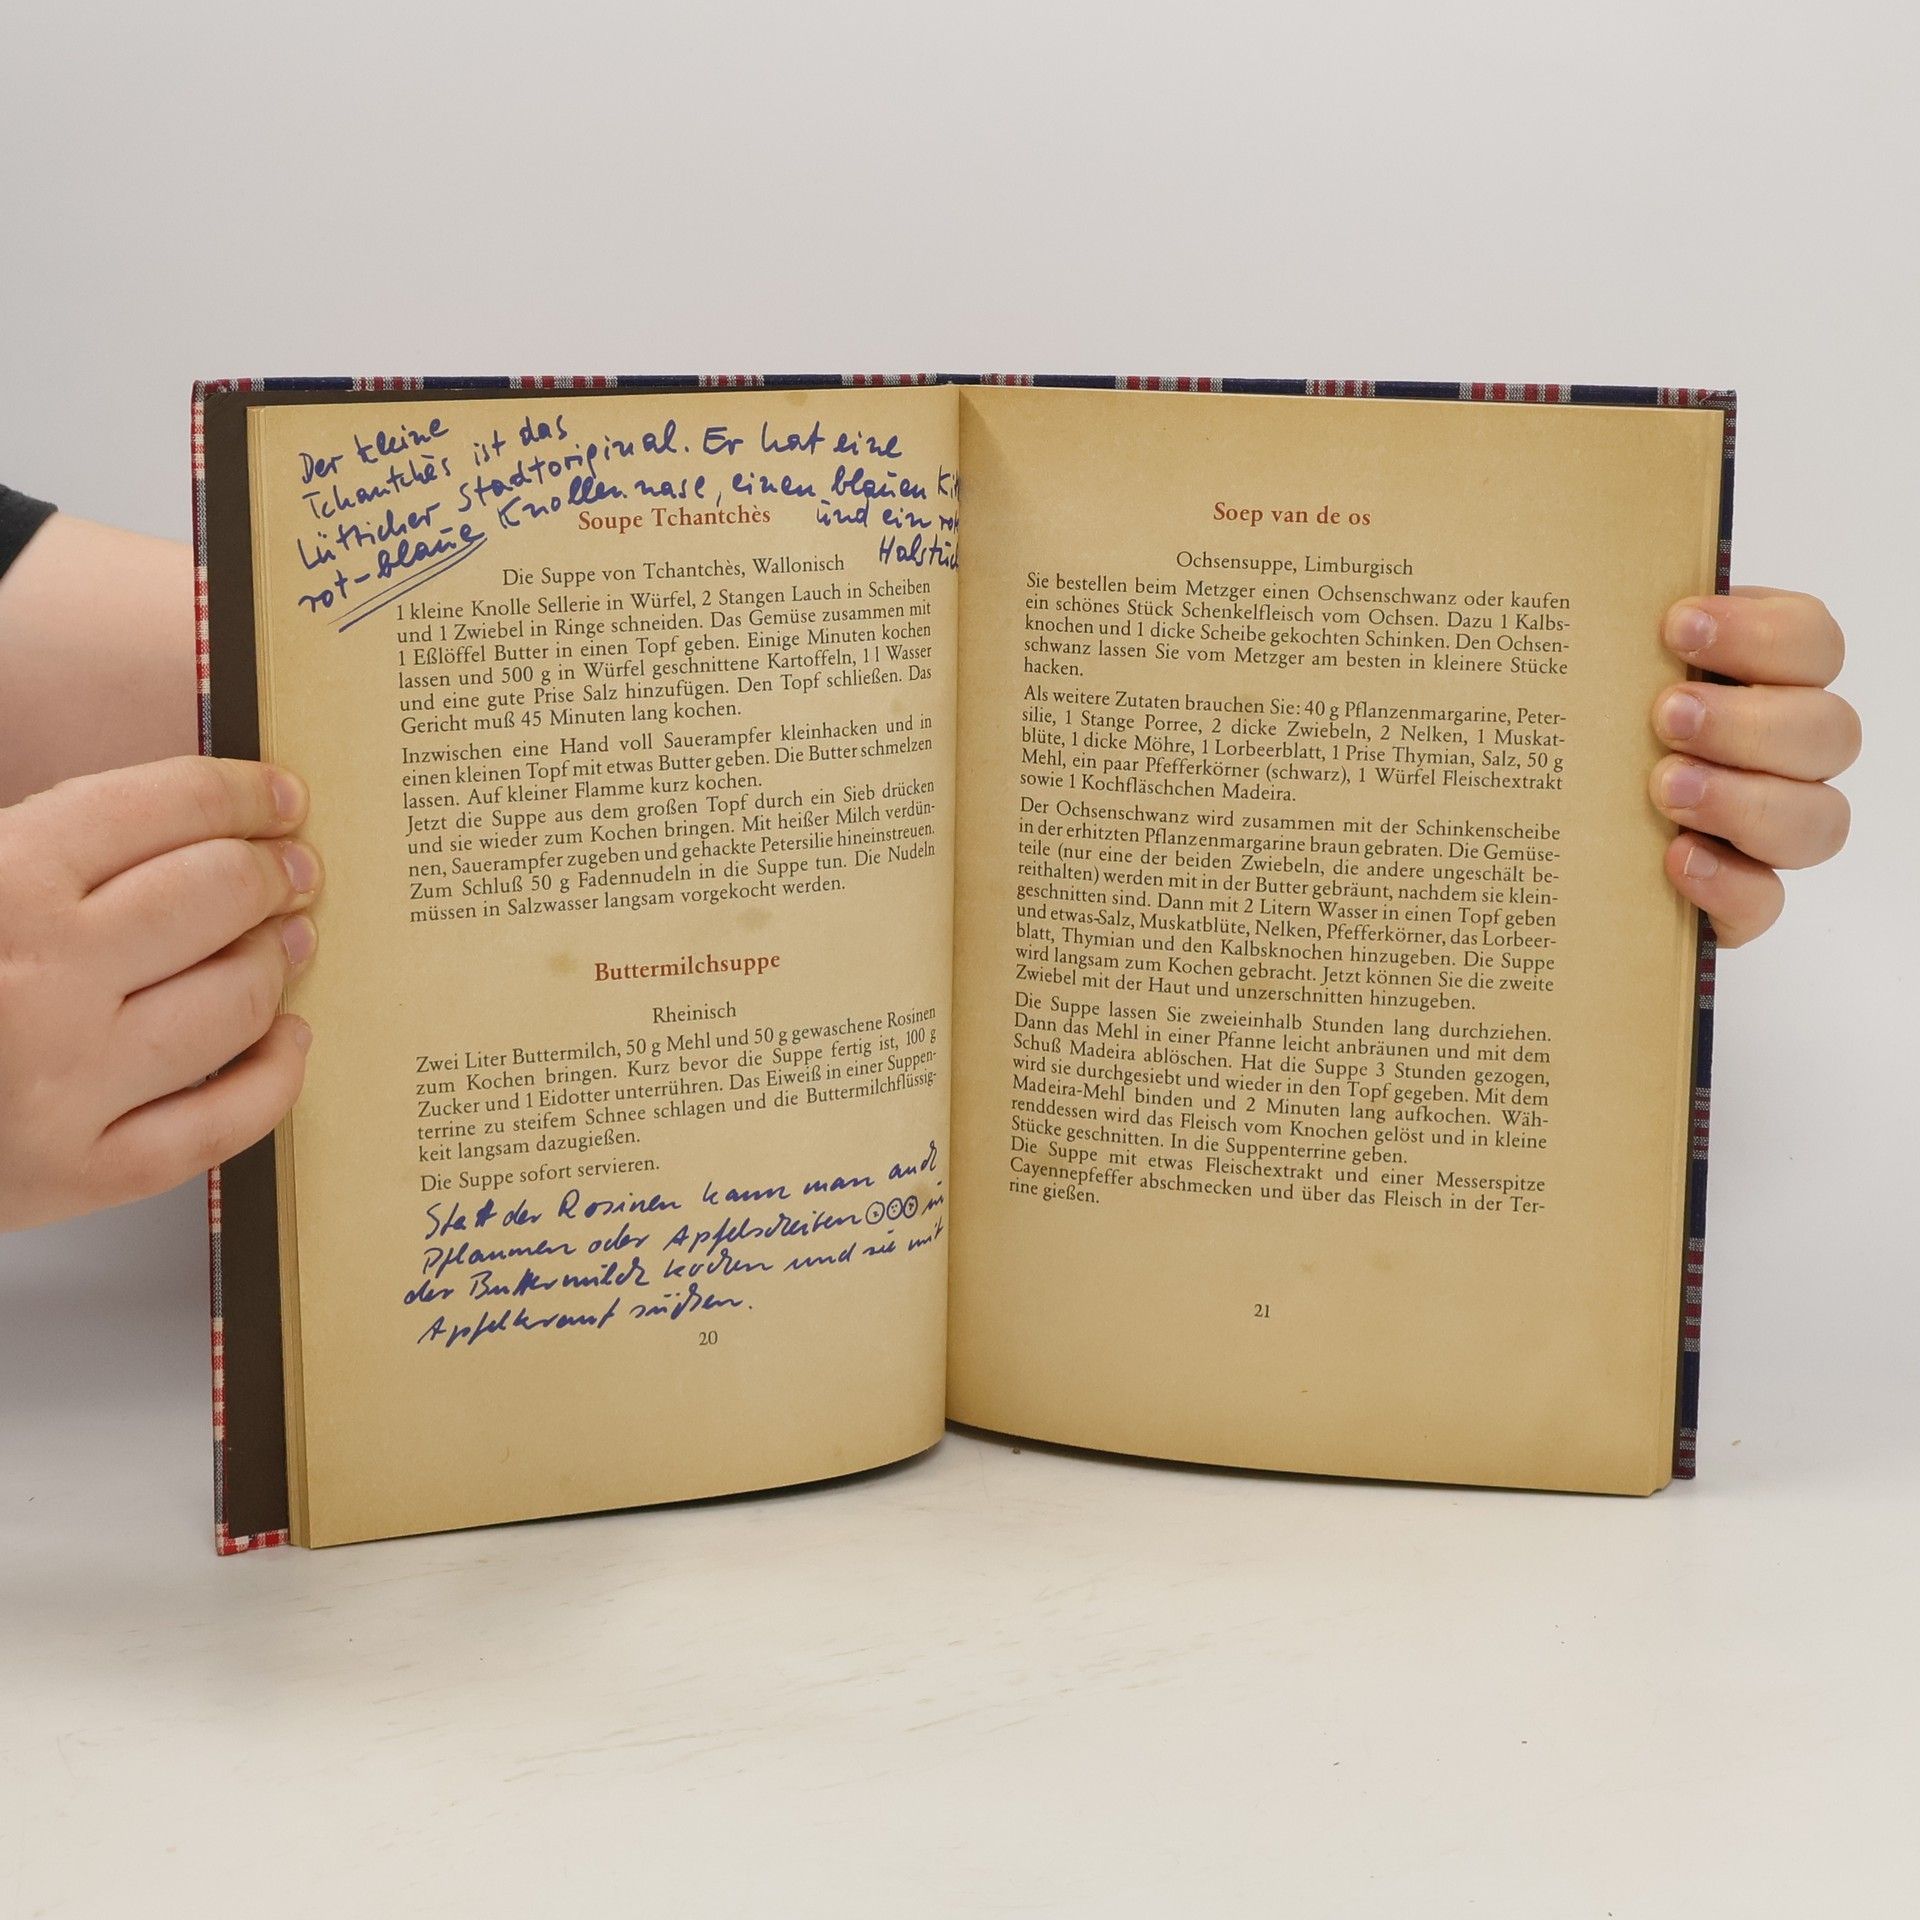 Der kleine
Tchantchès ist das
Lütticher Stadtoriginal. Er hat eine
rot-blaue Knollennase, einen blauen
und ein
Soupe Tchantchès
Die Suppe von Tchantchès, Wallonisch
1 kleine Knolle Sellerie in Würfel, 2 Stangen Lauch in Scheiben
und 1 Zwiebel in Ringe schneiden. Das Gemüse zusammen mit
1 Eßlöffel Butter in einen Topf geben. Einige Minuten kochen
lassen und 500 g in Würfel geschnittene Kartoffeln, 1 l Wasser
und eine gute Prise Salz hinzufügen. Den Topf schließen. Das
Gericht muß 45 Minuten lang kochen.
Inzwischen eine Hand voll Sauerampfer kleinhacken und in
einen kleinen Topf mit etwas Butter geben. Die Butter schmelzen
lassen. Auf kleiner Flamme kurz kochen.
Jetzt die Suppe aus dem großen Topf durch ein Sieb drücken
und sie wieder zum Kochen bringen. Mit heißer Milch verdün-
nen, Sauerampfer zugeben und gehackte Petersilie hineinstreuen.
Zum Schluß 50 g Fadennudeln in die Suppe tun. Die Nudeln
müssen in Salzwasser langsam vorgekocht werden.
Buttermilchsuppe
Rheinisch
Zwei Liter Buttermilch, 50 g Mehl und 50 g gewaschene Rosinen
zum Kochen bringen. Kurz bevor die Suppe fertig ist, 100 g
Zucker und 1 Eidotter unterrühren. Das Eiweiß in einer Suppen-
terrine zu steifem Schnee schlagen und die Buttermilchflüssig-
keit langsam dazugießen.
Die Suppe sofort servieren.
Statt der Rosinen kann man auch
Pflaumen oder Apfelscheiben in
der Buttermilch kochen und sie mit
Apfelkraut süßen.
20
Soep van de os
Ochsensuppe, Limburgisch
Sie bestellen beim Metzger einen Ochsenschwanz oder kaufen
ein schönes Stück Schenkelfleisch vom Ochsen. Dazu 1 Kalbs-
knochen und 1 dicke Scheibe gekochten Schinken. Den Ochsen-
schwanz lassen Sie vom Metzger am besten in kleinere Stücke
hacken.
Als weitere Zutaten brauchen Sie: 40 g Pflanzenmargarine, Peter-
silie, 1 Stange Porree, 2 dicke Zwiebeln, 2 Nelken, 1 Muskat-
blüte, 1 dicke Möhre, 1 Lorbeerblatt, 1 Prise Thymian, Salz, 50 g
Mehl, ein paar Pfefferkörner (schwarz), 1 Würfel Fleischextrakt
sowie 1 Kochfläschchen Madeira.
Der Ochsenschwanz wird zusammen mit der Schinkenscheibe
in der erhitzten Pflanzenmargarine braun gebraten. Die Gemüse-
teile (nur eine der beiden Zwiebeln, die andere ungeschält be-
reithalten) werden mit in der Butter gebräunt, nachdem sie klein-
geschnitten sind. Dann mit 2 Litern Wasser in einen Topf geben
und etwas Salz, Muskatblüte, Nelken, Pfefferkörner, das Lorbeer-
blatt, Thymian und den Kalbsknochen hinzugeben. Die Suppe
wird langsam zum Kochen gebracht. Jetzt können Sie die zweite
Zwiebel mit der Haut und unzerschnitten hinzugeben.
Die Suppe lassen Sie zweieinhalb Stunden lang durchziehen.
Dann das Mehl in einer Pfanne leicht anbräunen und mit dem
Schuß Madeira ablöschen. Hat die Suppe 3 Stunden gezogen,
wird sie durchgesiebt und wieder in den Topf gegeben. Mit dem
Madeira-Mehl binden und 2 Minuten lang aufkochen. Wäh-
renddessen wird das Fleisch vom Knochen gelöst und in kleine
Stücke geschnitten. In die Suppenterrine geben.
Die Suppe mit etwas Fleischextrakt und einer Messerspitze
Cayennepfeffer abschmecken und über das Fleisch in der Ter-
rine gießen.
21